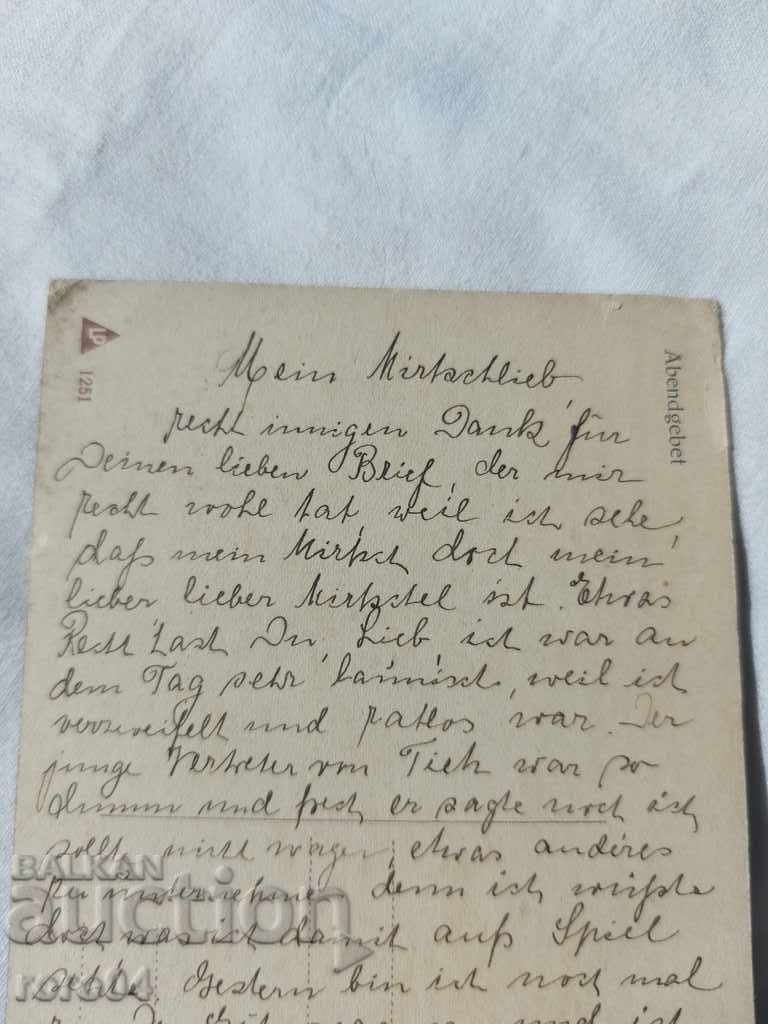 LP
1251
Abendgebet
Mein Mirkschlieb,
recht innigen Dank für
Deinen lieben Brief, der mir
recht wohl tat, weil ich sehe,
daß mein Mirksch doch mein
lieber lieber Mirkschel ist. Etwas
Recht hast Du, Lieb, ich war an
dem Tag sehr launisch, weil ich
verzweifelt und ratlos war. Der
junge Vertreter von Tieck war so
dumm und frech, er sagte noch ich
sollt nicht wagen, etwas anderes
zu unternehmen, denn ich wüßte
doch was ich damit aufs Spiel
setzte. Gestern bin ich noch mal
und ich
BALKAN
auction
rot604